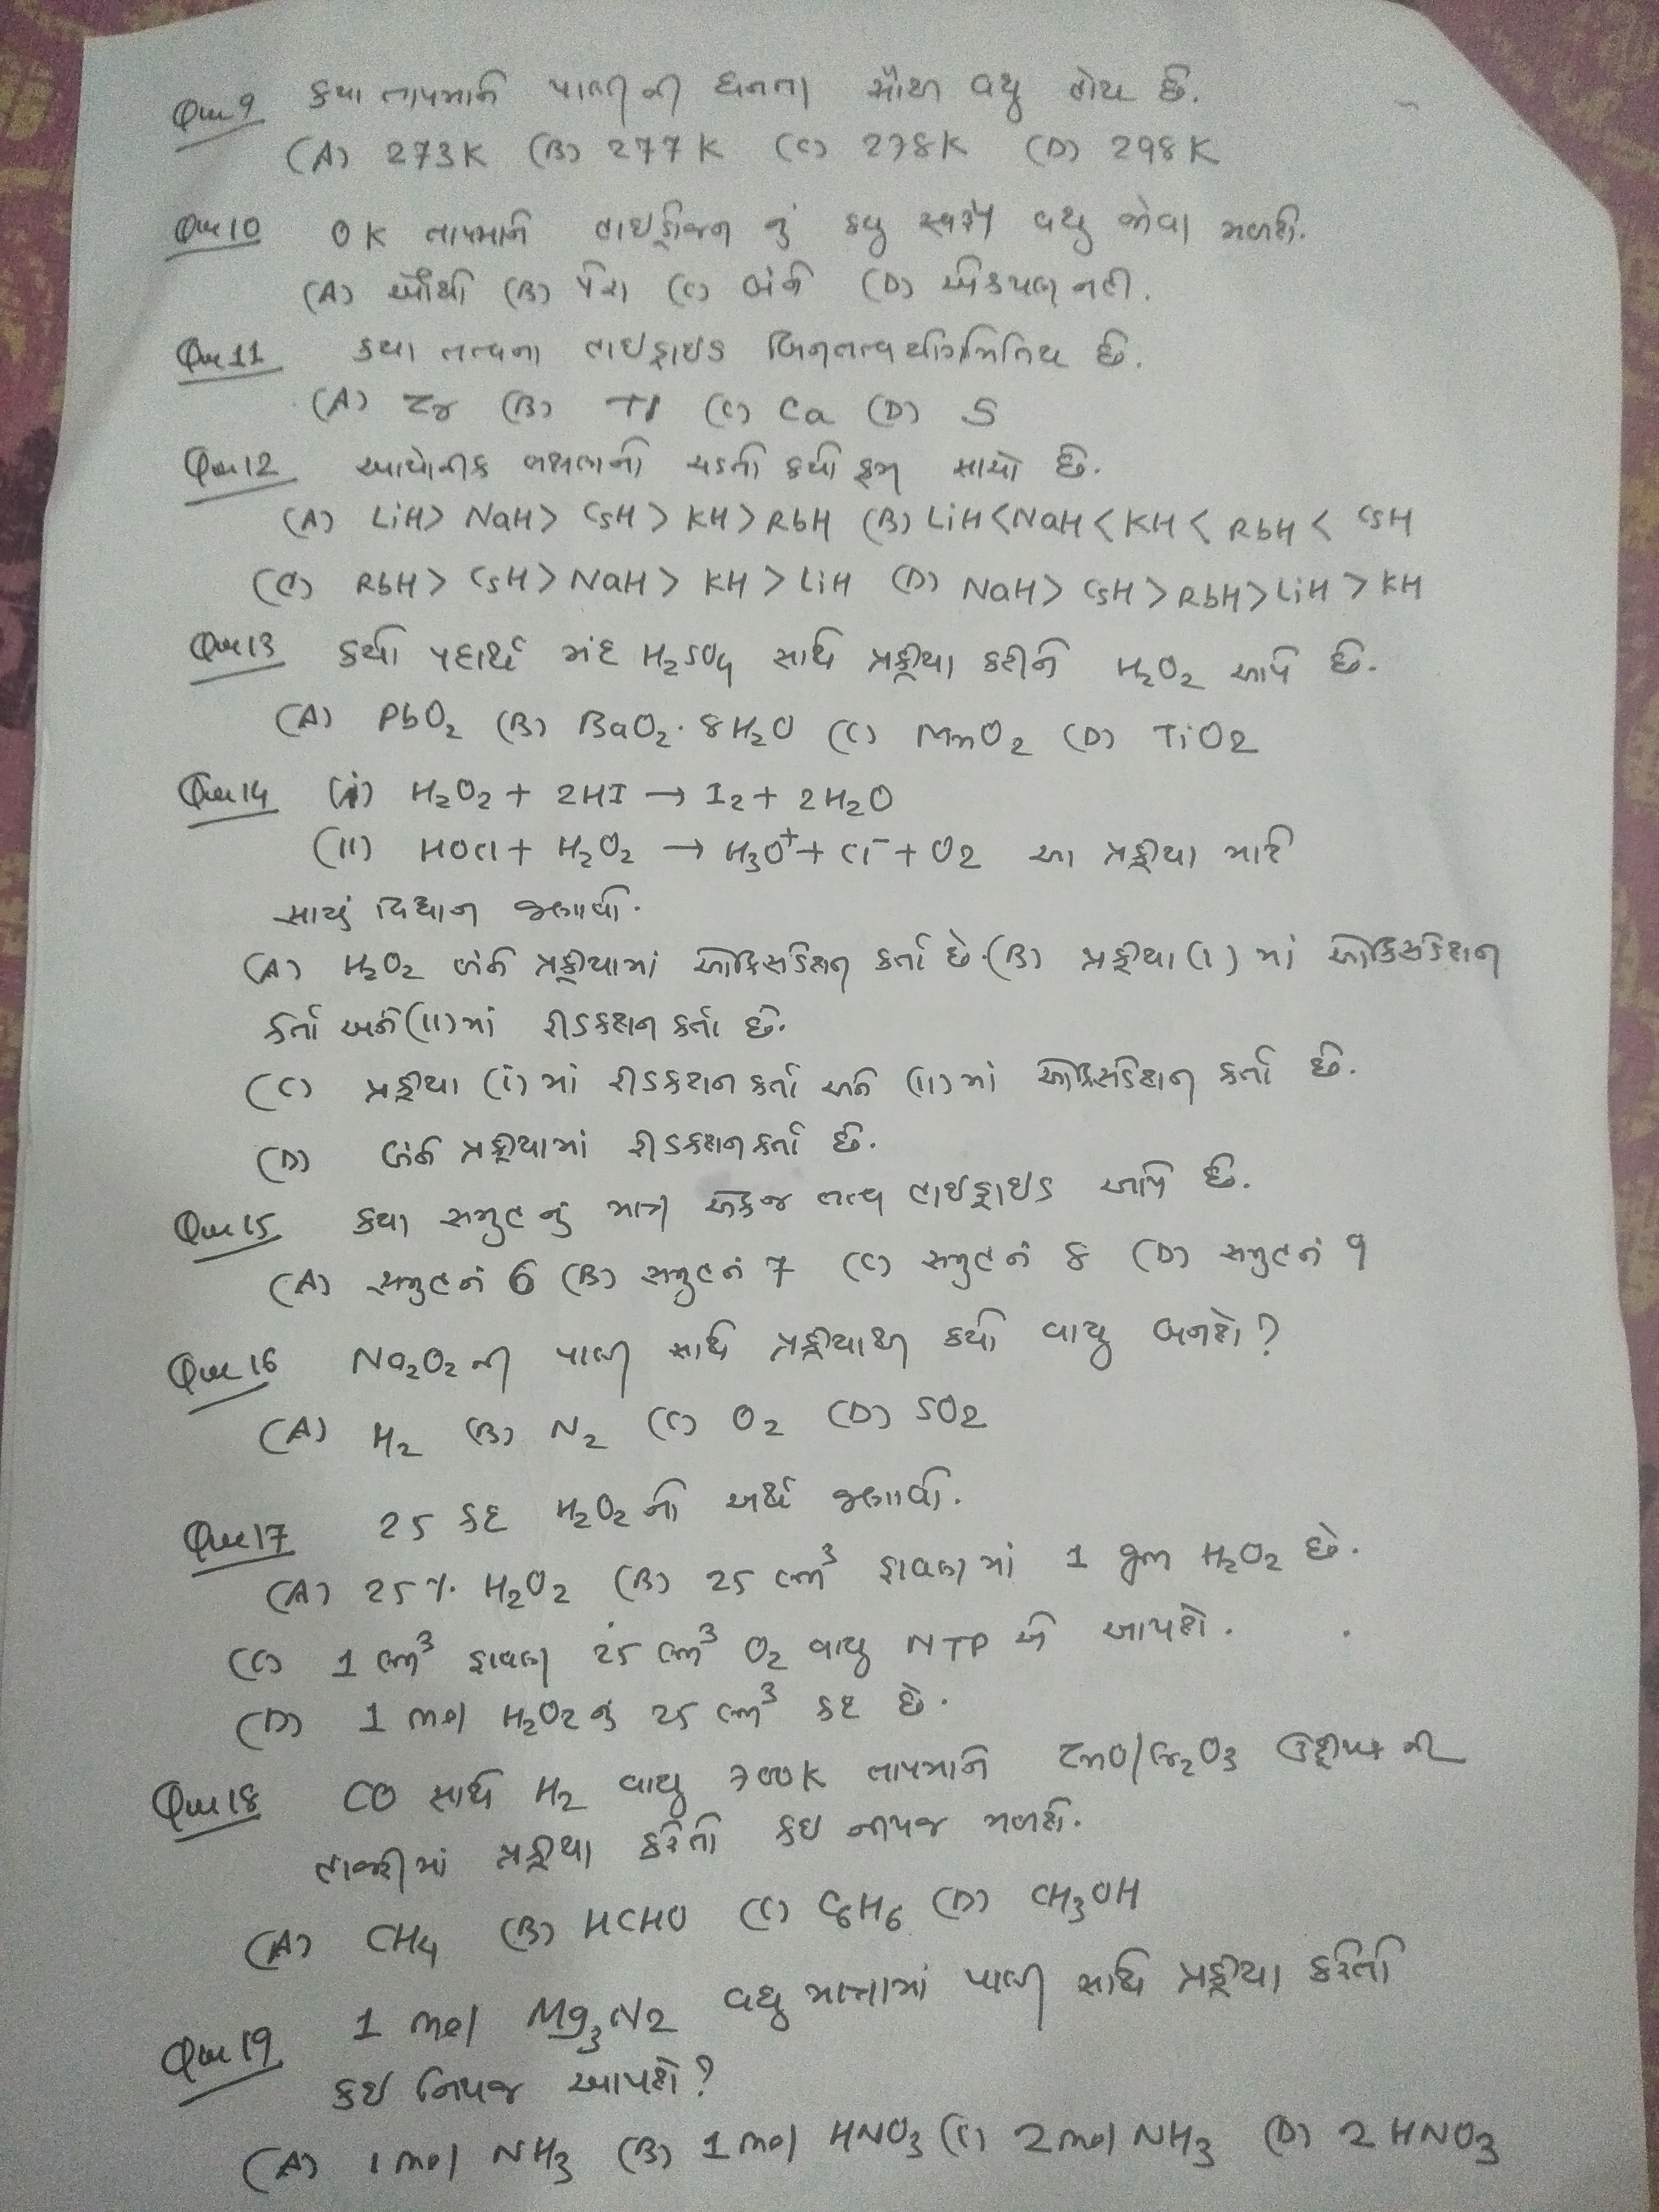 Que 9 કયા તાપમાને પાણી ની ઘનતા સૌથી વધુ હોય છે.
(A) 273K (B) 277K (C) 278K (D) 298K
Que 10 0K તાપમાને હાઇડ્રોજન નું કયુ સ્વરૂપ વધુ જોવા મળશે.
(A) ઓર્થો (B) પેરા (C) બંને (D) એકપણ નહી.
Que 11 કયા તત્વના હાઇડ્રાઇડ બિનતત્વયોગમિતિય છે.
(A) Zr (B) Tl (C) Ca (D) S
Que 12 આયોનીક લક્ષણનો ચડતો કયો ક્રમ સાચો છે.
(A) LiH > NaH > CsH > KH > RbH (B) LiH < NaH < KH < RbH < CsH
(C) RbH > CsH > NaH > KH > LiH (D) NaH > CsH > RbH > LiH > KH
Que 13 કયો પદાર્થ મંદ H₂SO₄ સાથે પ્રક્રીયા કરીને H₂O₂ આપે છે.
(A) PbO₂ (B) BaO₂·8H₂O (C) MnO₂ (D) TiO2
Que 14 (i) H₂O₂ + 2HI → I₂ + 2H₂O
(II) HOCl + H₂O₂ → H₃O⁺ + Cl⁻ + O2 આ પ્રક્રીયા માટે
સાચું વિધાન જણાવો.
(A) H₂O₂ બંને પ્રક્રીયામાં ઓક્સિડેશન કર્તા છે. (B) પ્રક્રીયા (I) માં ઓક્સિડેશન
કર્તા અને (II) માં રીડકશન કર્તા છે.
(C) પ્રક્રીયા (i) માં રીડકશન કર્તા અને (II) માં ઓક્સિડેશન કર્તા છે.
(D) બંને પ્રક્રીયામાં રીડકશનકર્તા છે.
Que 15 કયા સમુહ નું માત્ર એકજ તત્વ હાઇડ્રાઇડ આપે છે.
(A) સમુહ નં 6 (B) સમુહ નં 7 (C) સમુહ નં 8 (D) સમુહ નં 9
Que 16 Na₂O₂ ની પાણી સાથે પ્રક્રીયાથી કયો વાયુ બનશે?
(A) H₂ (B) N₂ (C) O₂ (D) SO2
Que 17 25 કદ H₂O₂ નો અર્થ જણાવો.
(A) 25% H₂O₂ (B) 25 cm³ દ્રાવણમાં 1 gm H₂O₂ છે.
(C) 1 cm³ દ્રાવણ 25 cm³ O₂ વાયુ NTP એ આપશે.
(D) 1 mol H₂O₂ નું 25 cm³ કદ છે.
Que 18 CO સાથે H₂ વાયુ 700K તાપમાને ZnO/Cr₂O₃ ઉદ્દીપક ની
હાજરીમાં પ્રક્રીયા કરતાં કઇ નીપજ મળશે.
(A) CH₄ (B) HCHO (C) C₆H₆ (D) CH₃OH
Que 19 1 mol Mg₃N2 વધુ માત્રામાં પાણી સાથે પ્રક્રીયા કરતાં
કઇ નિપજ આપશે?
(A) 1 mol NH₃ (B) 1 mol HNO₃ (C) 2 mol NH₃ (D) 2 HNO₃